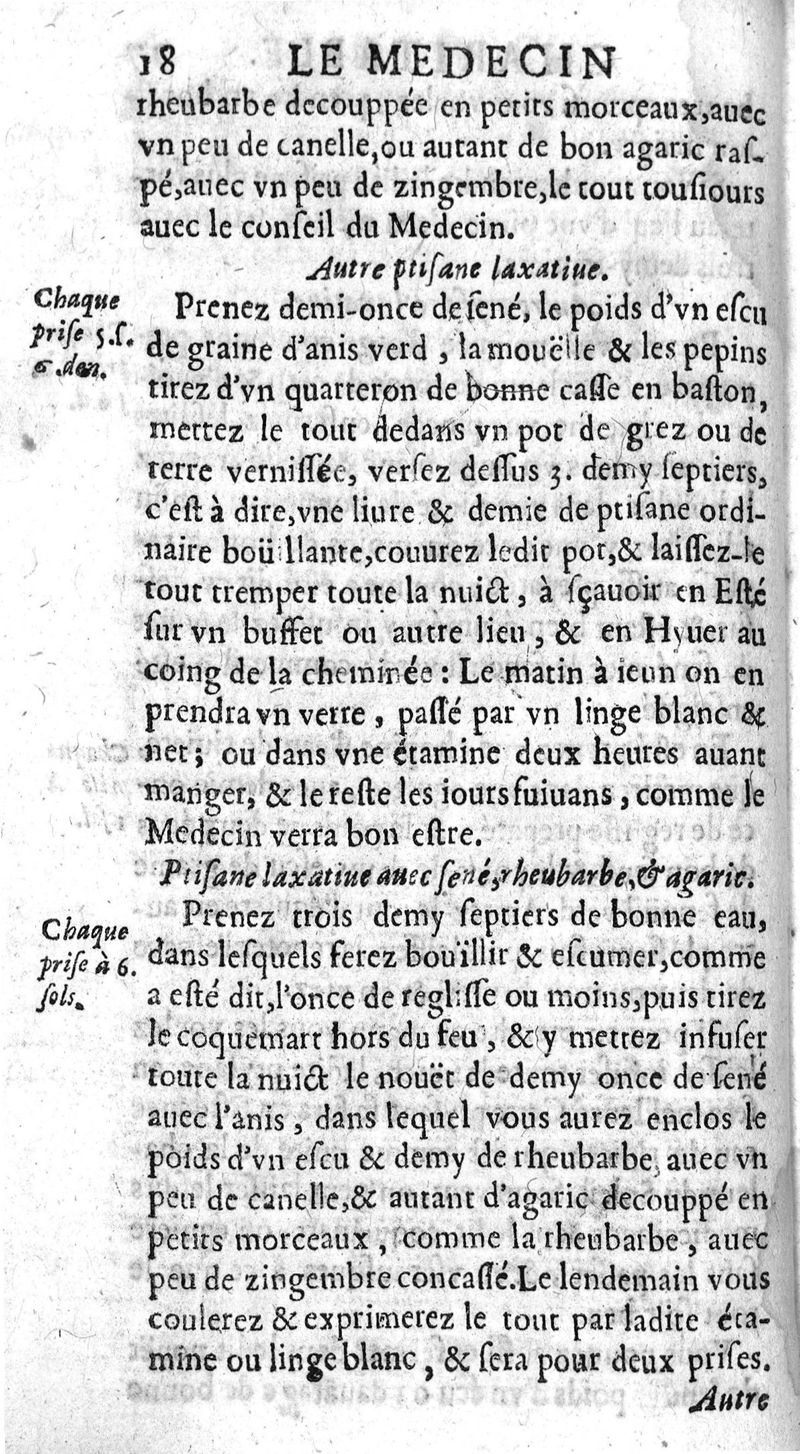 18 LE MEDECIN
rheubarbe decouppée en petits morceaux,auec
vn peu de canelle,ou autant de bon agaric raſ-
pé,auec vn peu de zingembre,le tout touſiours
auec le conſeil du Medecin.
Autre ptiſane laxatiue.
Chaque
priſe 5.ſ.
6.den.
Prenez demi-once de ſené, le poids d'vn eſcu
de graine d'anis verd , la mouëlle & les pepins
tirez d'vn quarteron de bonne caſſe en baſton,
mettez le tout dedans vn pot de grez ou de
terre verniſſée, verſez deſſus 3. demy ſeptiers,
c'eſt à dire,vne liure & demie de ptiſane ordi-
naire boüillante,couurez ledit pot,& laiſſez-le
tout tremper toute la nuict , à ſçauoir en Eſté
ſur vn buffet ou autre lieu , & en Hyuer au
coing de la cheminée : Le matin à ieun on en
prendra vn verre , paſſé par vn linge blanc &
net ; ou dans vne étamine deux heures auant
manger, & le reſte les iours ſuiuans , comme le
Medecin verra bon eſtre.
Ptiſane laxatiue auec ſené,rheubarbe,& agaric.
Chaque
priſe à 6.
ſols.
Prenez trois demy ſeptiers de bonne eau,
dans leſquels ferez bouïllir & eſcumer,comme
a eſté dit,l'once de regliſſe ou moins,puis tirez
le coquemart hors du feu , & y mettez infuſer
toute la nuict le nouët de demy once de ſené
auec l'anis , dans lequel vous aurez enclos le
poids d'vn eſcu & demy de rheubarbe, auec vn
peu de canelle,& autant d'agaric decouppé en
petits morceaux , comme la rheubarbe , auec
peu de zingembre concaſſé.Le lendemain vous
coulerez & exprimerez le tout par ladite éta-
mine ou linge blanc , & ſera pour deux priſes.
Autre